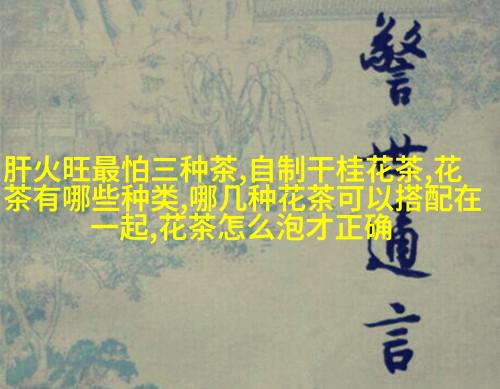 肝火旺最怕三种茶,自制干桂花茶,花
茶有哪些种类,哪几种花茶可以搭配在
一起,花茶怎么泡才正确
警世通言